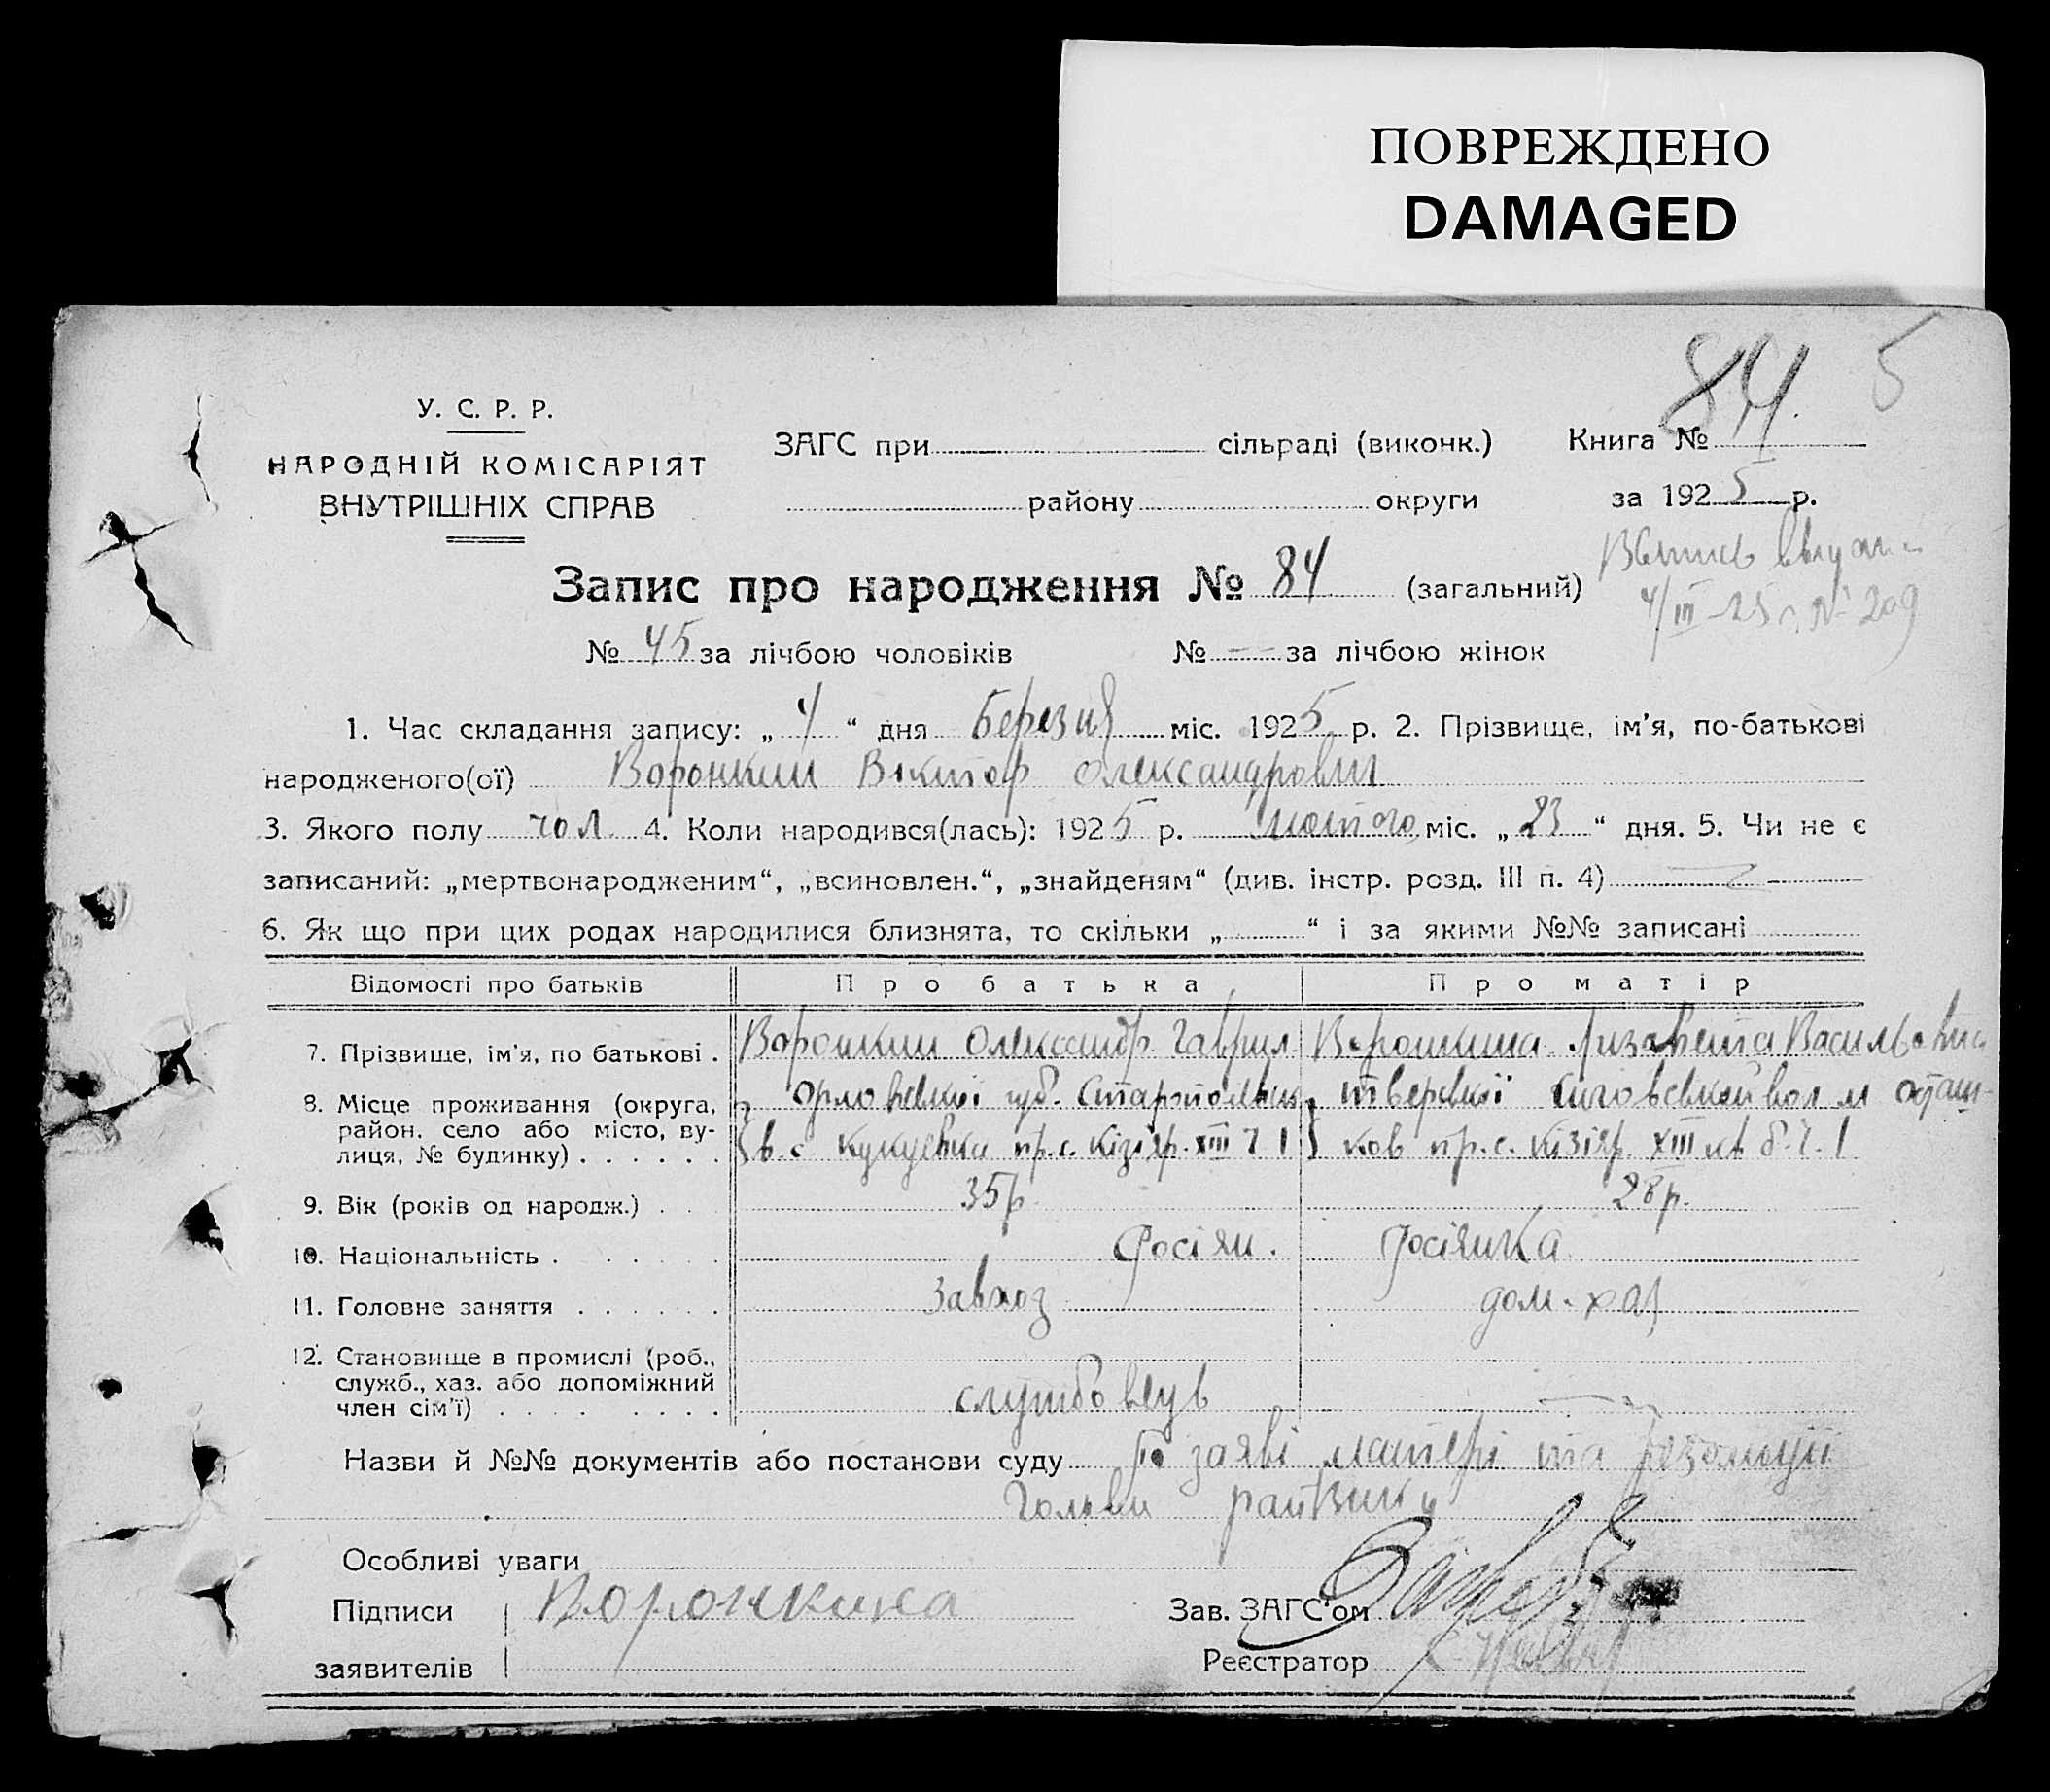 ПОВРЕЖДЕНО
DAMAGED
84 5
У. С. Р. Р.
НАРОДНІЙ КОМІСАРІЯТ
ВНУТРІШНІХ СПРАВ
ЗАГС при сільраді (виконк.)
району округи
Книга №
за 1925 р.
4/III-25 г. № 209
Запис про народження № 84 (загальний)
№ 45 за лічбою чоловіків № — за лічбою жінок
1. Час складання запису: „4“ дня Березня міс. 1925 р. 2. Прізвище, ім’я, по-батькові
народженого(ої) Воронкин Віктор Олександрович
3. Якого полу чол. 4. Коли народився(лась): 1925 р. лютого міс. „23“ дня. 5. Чи не є
записаний: „мертвонародженим“, „всиновлен.“, „знайденям“ (див. інстр. розд. III п. 4)
6. Як що при цих родах народилися близнята, то скільки „ “ і за якими №№ записані
Відомості про батьків Про батька Про матір
7. Прізвище, ім’я, по батькові . Воронкин Олександр Гаврил. Воронкина Лизавета Васильовна
8. Місце проживання (округа, Орловської губ. Тверської
район. село або місто, ву-
лиця, № будинку) . . . . . . в. с Кукуевка пр. с. Кізіяр. XIII ч. 1 ков пр. с. Кізіяр. XIII
9. Вік (років од народж.) . . . 35 р. 28 р.
10. Національність . . . . . . росіян. росіянка
11. Головне заняття . . . . . . завхоз дом. хаз
12. Становище в промислі (роб.,
служб., хаз. або допоміжний
член сім’ї) . . . . . . . . службовець —
Назви й №№ документів або постанови суду По заяві матері та резолюції
Голови райвику
Особливі уваги
Підписи Воронкина Зав. ЗАГС’ом
заявителів Реєстратор